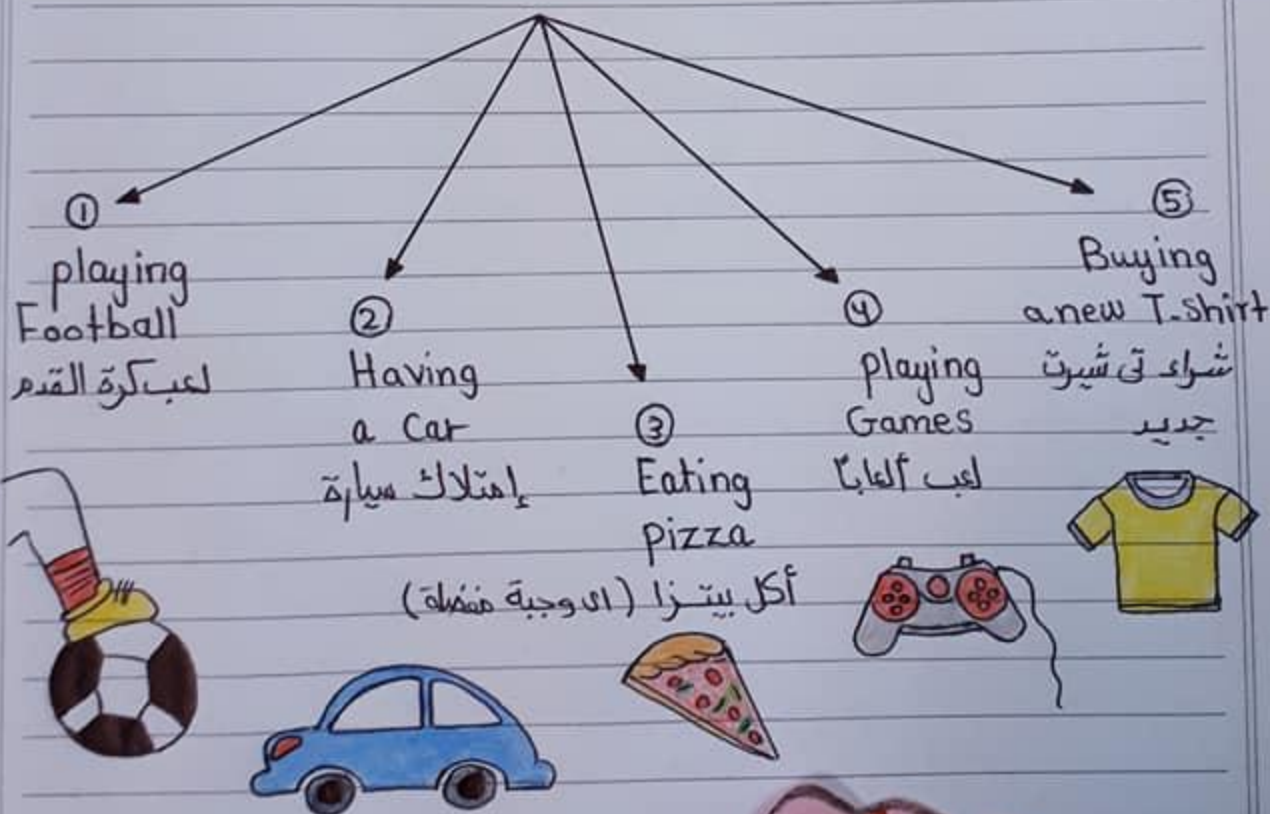 ①
playing
Football
لعب كرة القدم
②
Having
a Car
إمتلاك سيارة
③
Eating
pizza
أكل بيتزا (اى وجبة مفضلة)
④
playing
Games
لعب ألعابًا
⑤
Buying
a new T-shirt
شراء تى شيرت
جديد